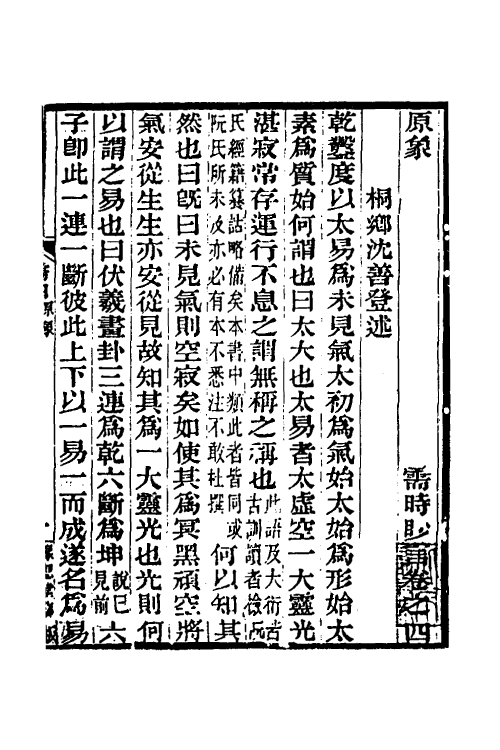 原象　需時眇言卷之四
桐鄉沈善登述
乾鑿度以太易爲未見氣太初爲氣始太始爲形始太
素爲質始何謂也曰太大也太易者太虛空一大靈光
湛寂常存運行不息之謂無稱之稱也此語及大衍古
古訓讀者檢阮
氏經籍纂詁略備矣本書中類此者皆同或
阮氏所未及亦必有本不悉注不敢杜撰何以知其
然也曰旣曰未見氣則空寂矣如使其爲冥黑頑空將
氣安從生生亦安從見故知其爲一大靈光也光則何
以謂之易也曰伏羲畫卦三連爲乾六斷爲坤說已
見前六
子卽此一連一斷彼此上下以一易一而成遂名爲易
原象
一